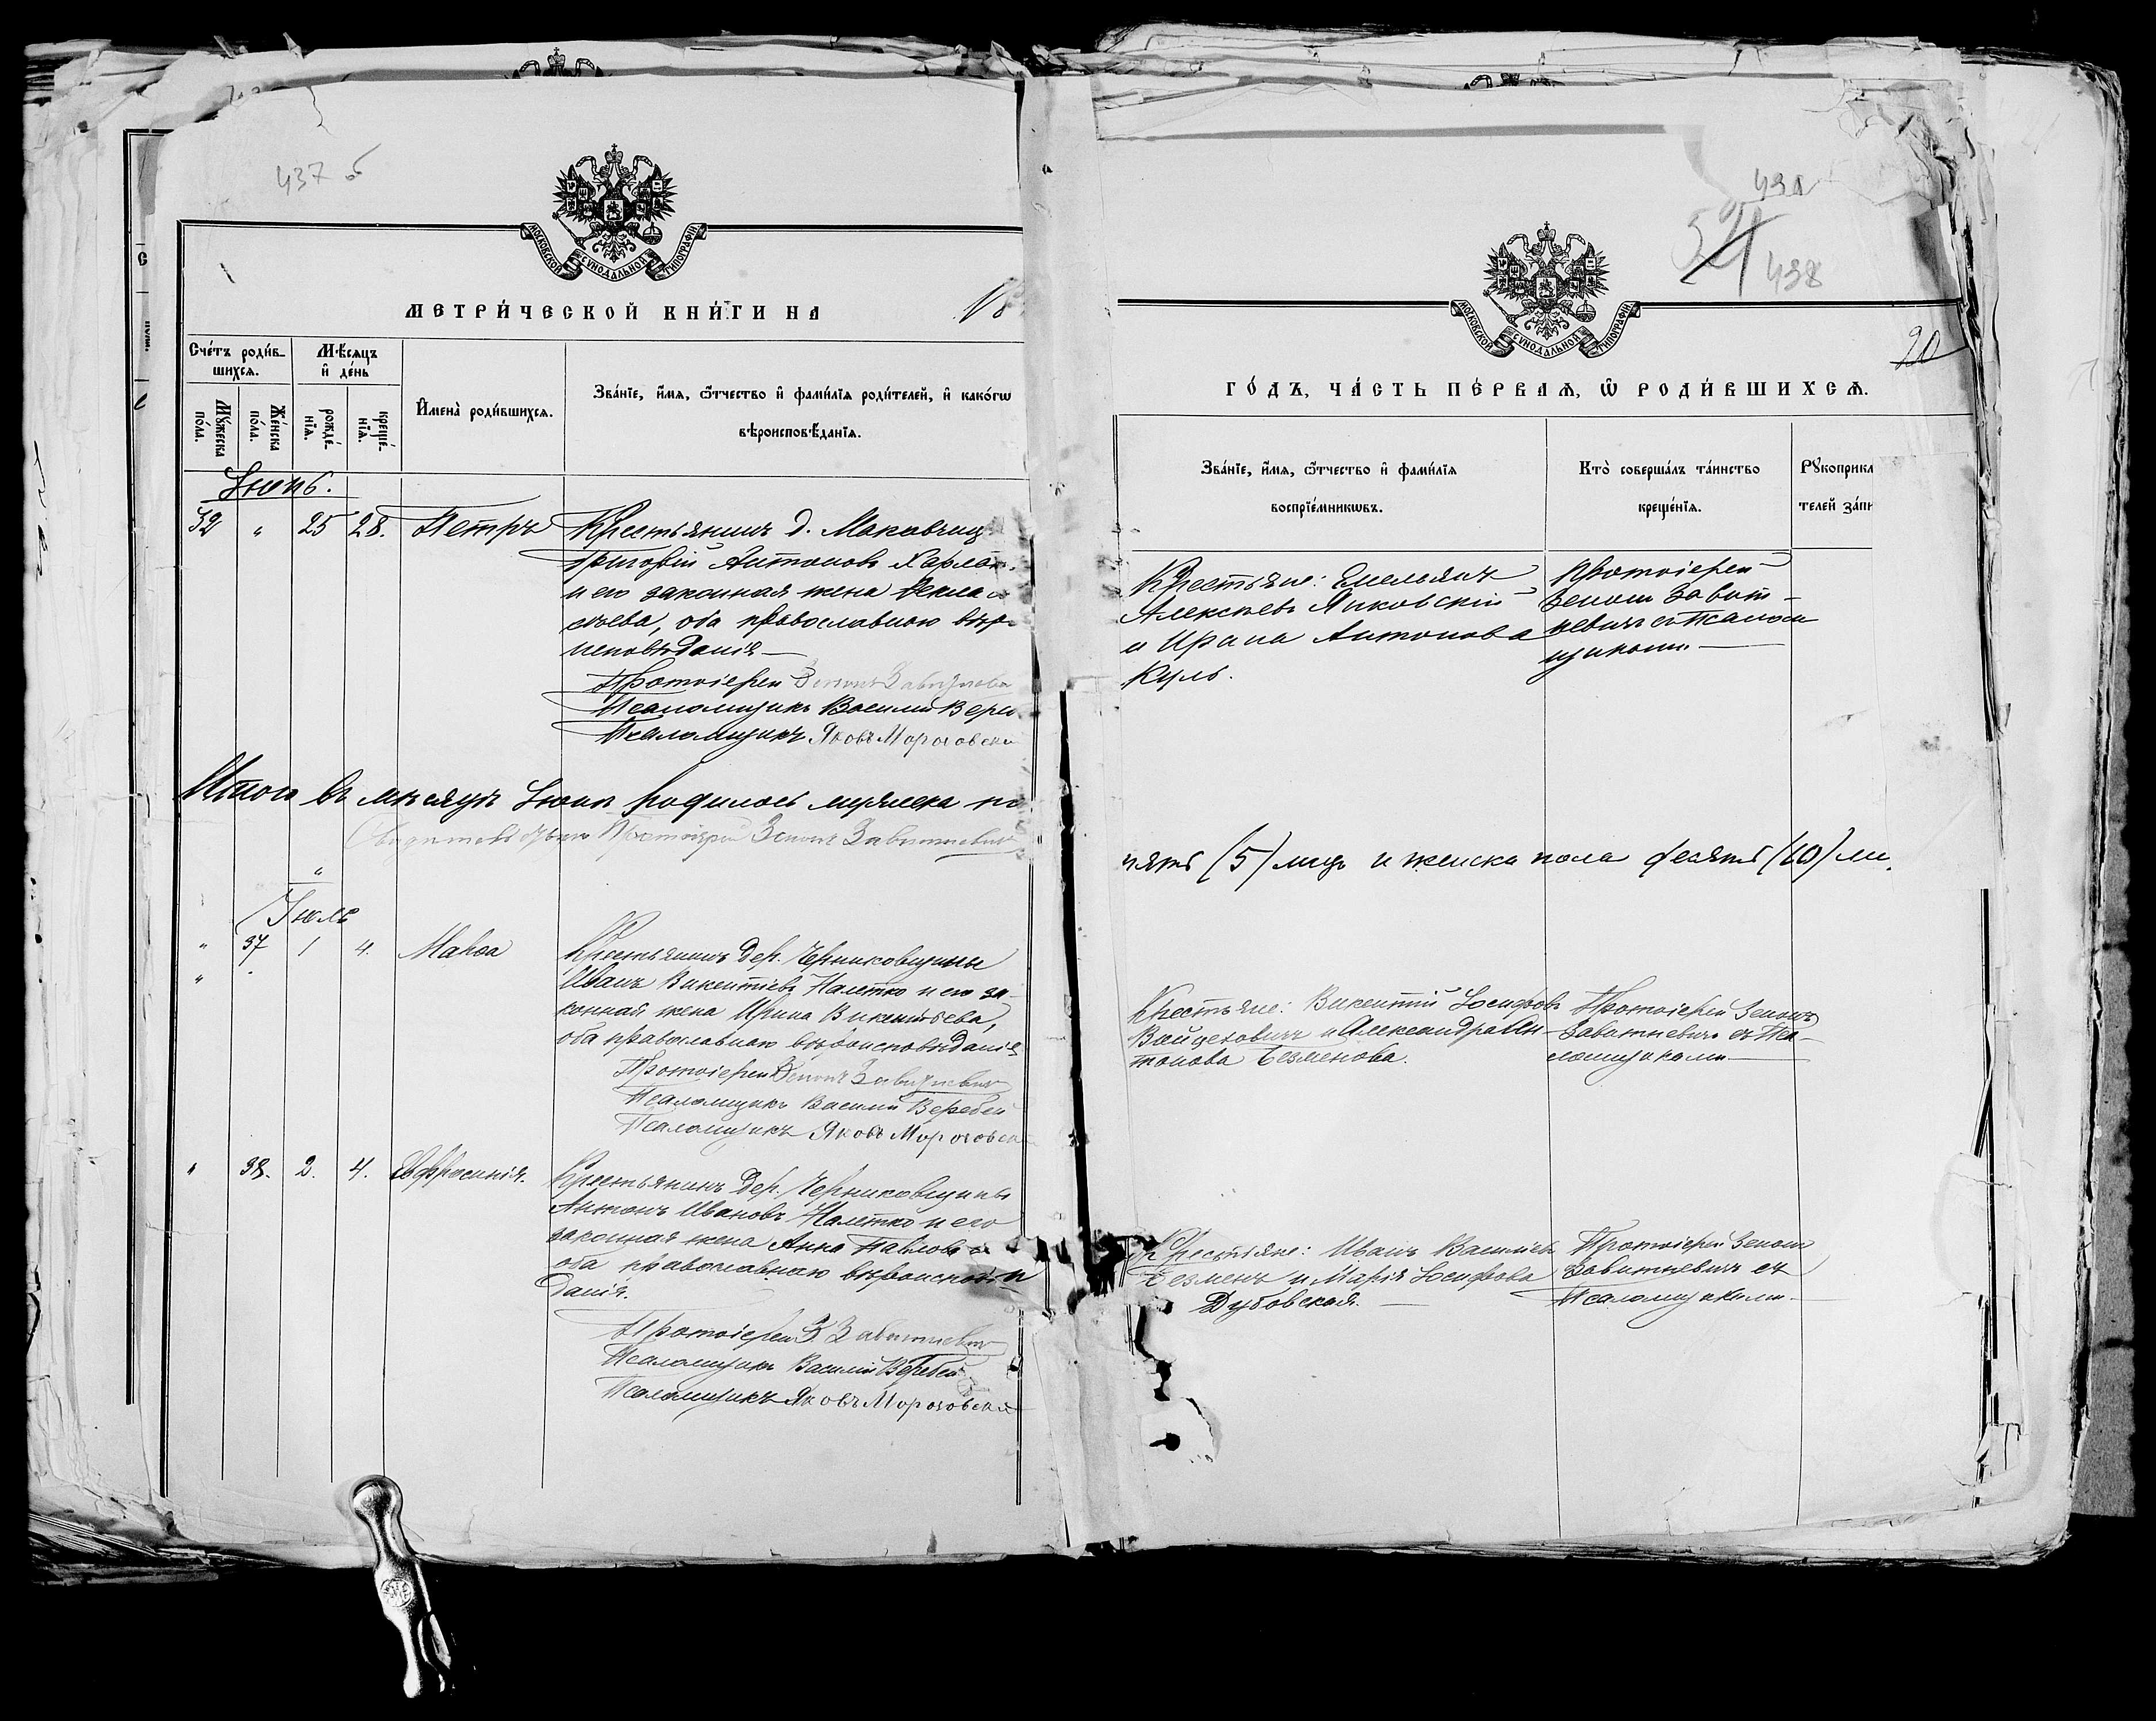 437 об
МОСКОВСКОЙ СУНОДАЛЬНОЙ ТИПОГРАФІИ
МЕТРИ́ЧЕСКОЙ КНИ́ГИ НА 18
Сче́тъ роди́в-
шихся.
Мѣ́сяцъ
и҆ де́нь
Мꙋ́жеска
по́ла.
Же́нска
по́ла.
рожде́-
нїя.
креще́-
нїя.
И҆мена̀ роди́вшихся.
Зва́нїе, и҆́мя, ѻ҆́тчество и҆ фами́лїя роди́телей, и҆ како́гѡ
вѣроисповѣ́данїя.
Іюнь.
32 " 25 28. Петръ
Крестьянинъ д. Маковчиц
Григорій Антоновъ Харла
и его законная жена Фекла
еева, оба православнаго вѣр
исповѣданія
Протоіерей Зенонъ Завитнев
Псаломщикъ Василій Вере
Псаломщикъ Яковъ Морозовск
Итого въ мѣсяцѣ Іюнѣ родилось мужеска по
Протоіерей Зенонъ Завитневич
Іюль
" 37 1 4. Марѳа
Крестьянинъ дер. Черниковщины
Иванъ Викентіевъ Налетко и его за-
конная жена Ирина Викентьева,
оба православнаго вѣроисповѣданія
Протоіерей Зенонъ Завитневич
Псаломщикъ Василій Веребей
Псаломщикъ Яковъ Морозовск
" 38. 2. 4. Евфросинія.
Крестьянинъ дер. Черниковщины
Антонъ Ивановъ Налетко и его
законная жена Анна Павлова
оба православнаго вѣроисповѣ
данія.
Протоіерей З. Завитневич
Псаломщикъ Василій Веребей
Псаломщикъ Яковъ Морозовск
438
20
МОСКОВСКОЙ СУНОДАЛЬНОЙ ТИПОГРАФІИ
ГО́ДЪ, ЧА́СТЬ ПЕ́РВАЯ, Ѡ҆ РОДИ́ВШИХСЯ.
Зва́нїе, и҆́мя, ѻ҆́тчество и҆ фами́лїя
воспрїе́мникѡвъ.
Кто̀ соверша́лъ та́инство
креще́нїя.
Рꙋкоприкл
телей запи
Крестьяне: Емельянъ
Алексѣевъ Янковскій
и Ирина Антонова
Куль.
Протоіерей
Зенонъ Завит-
невичъ съ Псалом
щикомъ.
пять (5) лицъ и женска пола десять (10) ли.
Крестьяне: Викентій Іосифовъ
Войцеховичъ и Александра Ан-
тонова Безменова.
Протоіерей Зенонъ
Завитневичъ съ Пса-
ломщиками
Крестьяне: Иванъ Василіевъ
Безменъ и Марія Іосифова
Дубовская.
Протоіерей Зенонъ
Завитневичъ съ
Псаломщиками